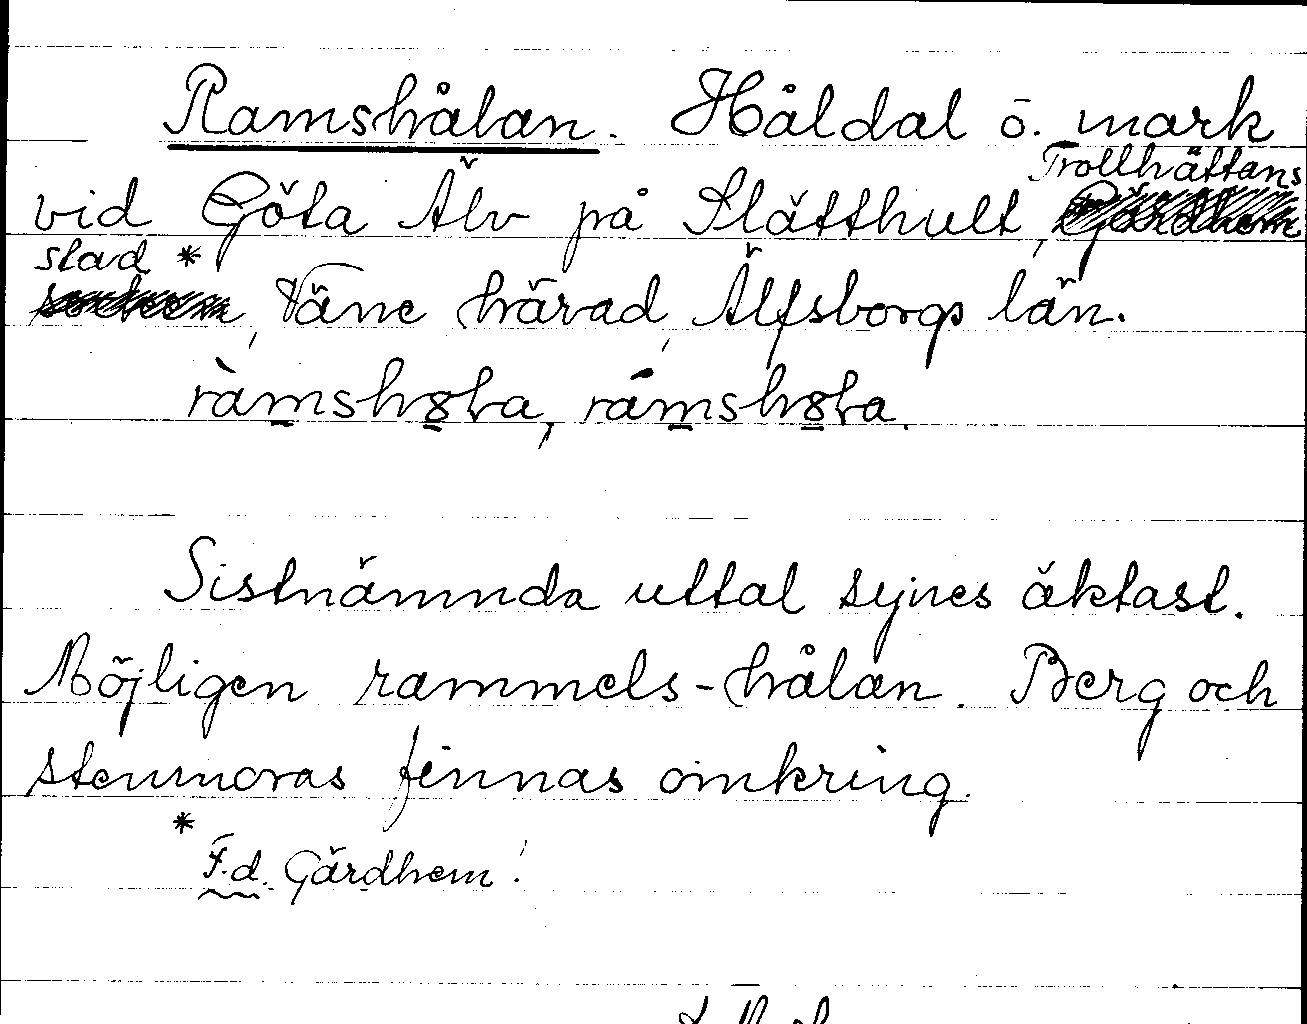 Ramshålan. Håldal o. mark
vid Göta Älv på Slätthult, Trollhättans
stad *, Väne härad, Älfsborgs län.
Sistnämnda uttal synes äktast.
Möjligen rammels-hålan. Berg och
stenmoras finnas omkring.
* F.d. Gärdhem!